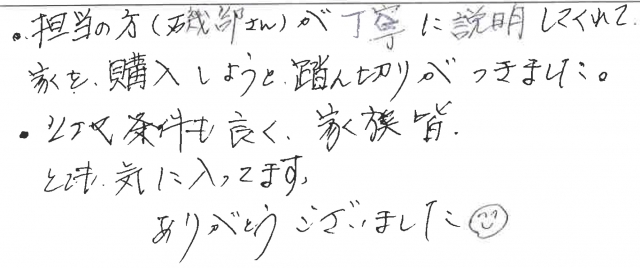 ・担当の方（磯部さん）が丁寧に説明してくれて、
家を、購入しようと、踏ん切りがつきました。
・立地条件も良く、家族皆、
とても気に入ってます。
ありがとうございました